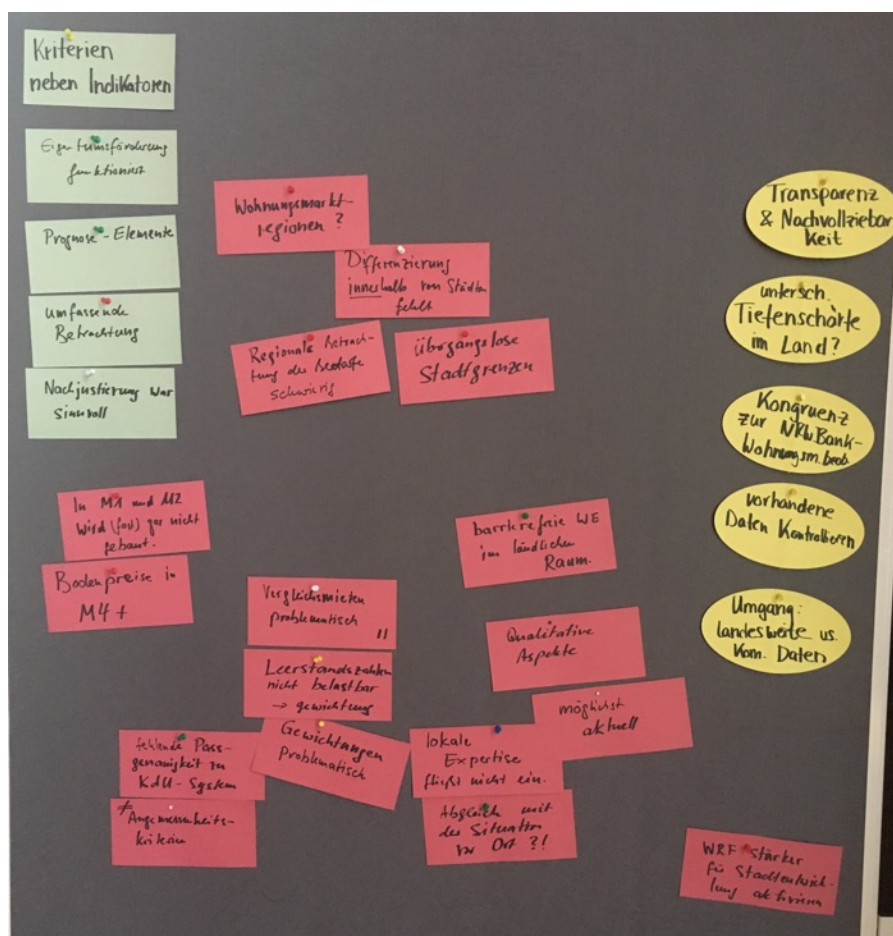 Kriterien
neben Indikatoren
Eigentumsförderung
funktioniert
Prognose-Elemente
umfassende
Betrachtung
Nachjustierung war
sinnvoll
Wohnungsmarkt-
regionen?
Differenzierung
innerhalb von Städten
fehlt
Regionale Betrach-
tung der Bedarfe
schwierig
übergangslose
Stadtgrenzen
In M1 und M2
wird (fast) gar nicht
gebaut.
Bodenpreise in
M4+
Vergleichsmieten
problematisch
!!
Leerstandszahlen
nicht belastbar
→ gewichtung
Gewichtungen
Problematisch
fehlende Pass-
genauigkeit zu
KdU-System
≠ Angemessenheits-
kriterien
barrierefreie WE
im ländlichen
Raum.
Qualitative
Aspekte
möglichst
aktuell
lokale
Expertise
fließt nicht ein.
Abgleich mit
der Situation
vor Ort?!
WRF stärker
für Stadtentwick-
lung aktivieren
Transparenz
& Nachvollziebar
keit
untersch.
Tiefenschärfe
im Land?
Kongruenz
zur NRW.Bank-
Wohnungsm.beob.
vorhandene
Daten Kontrollieren
Umgang:
landesweite vs.
kom. Daten